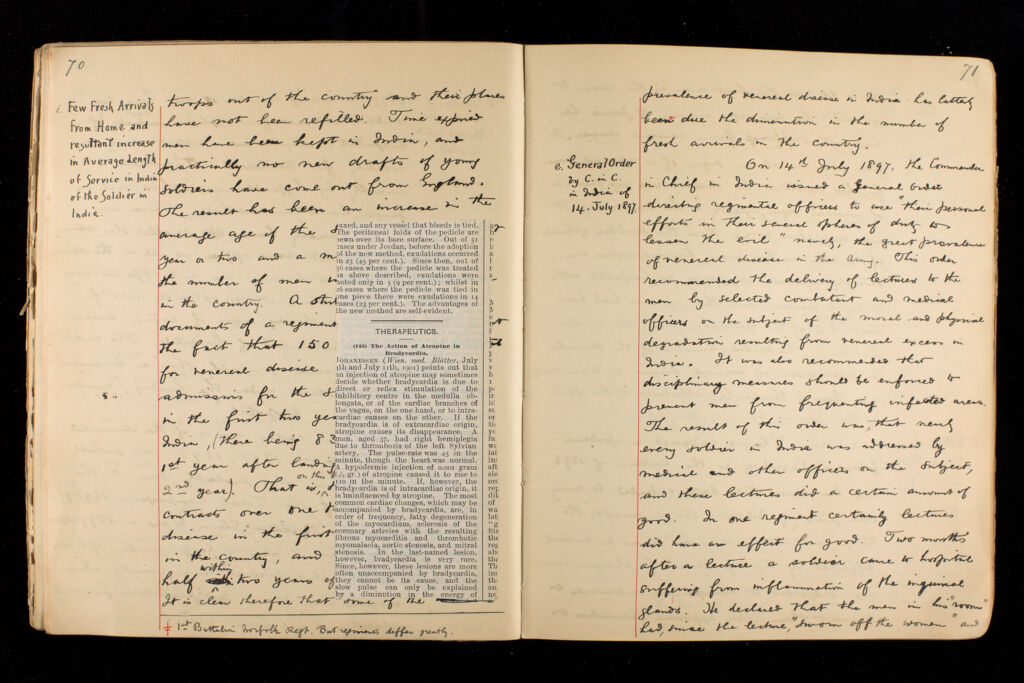 70
i. Few Fresh Arrivals
from Home and
resultant increase
in Average Length
of Service in India
of the Soldier in
India.
troops out of the country and their places
have not been refilled. Time expired
men have been kept in India, and
practically no new drafts of young
soldiers have come out from England.
The result has been an increase in the
average age of the s
year or two and a m
the number of men in
in the country. A
documents of a regiment
the fact that 150
for venereal disease
admissions for the
in the first two year
India, (there being 83
1st year after landing
2nd year). That is, on this
contracts over one
disease in the first
in the country, and
half within two years of
It is clear therefore that some of the
‡ 1st Battalion Norfolk Regt. But regiments differ greatly.
axed, and any vessel that bleeds is tied.
The peritoneal folds of the pedicle are
sewn over its bare surface. Out of 51
cases under Jordan, before the adoption
of the new method, exudations occurred
in 23 (45 per cent.). Since then, out of
56 cases where the pedicle was treated
as above described, exudations were
noted only in 5 (9 per cent.); whilst in
26 cases where the pedicle was tied in
one piece there were exudations in 14
cases (23 per cent.). The advantages of
the new method are self-evident.
THERAPEUTICS.
(146) The Action of Atropine in
Bradycardia.
JOHANESSEN (Wien. med. Blätter, July
4th and July 11th, 1901) points out that
an injection of atropine may sometimes
decide whether bradycardia is due to
direct or reflex stimulation of the
inhibitory centre in the medulla ob-
longata, or of the cardiac branches of
the vagus, on the one hand, or to intra-
cardiac causes on the other. If the
bradycardia is of extracardiac origin,
atropine causes its disappearance. A
man, aged 37, had right hemiplegia
due to thrombosis of the left Sylvian
artery. The pulse-rate was 45 in the
minute, though the heart was normal.
A hypodermic injection of 0.001 gram
gr.) of atropine caused it to rise to
110 in the minute. If, however, the
bradycardia is of intracardiac origin, it
is uninfluenced by atropine. The most
common cardiac changes, which may be
accompanied by bradycardia, are, in
order of frequency, fatty degeneration
of the myocardium, sclerosis of the
coronary arteries with the resulting
fibrous myocarditis and thrombotic
myomalacia, aortic stenosis, and mitral
stenosis. In the last-named lesion,
however, bradycardia is very rare.
Since, however, these lesions are more
often unaccompanied by bradycardia,
they cannot be its cause, and the
slow pulse can only be explained
by a diminution in the energy of
71
prevalence of venereal disease in India has lately
been due the diminution in the number of
fresh arrivals in the country.
e. General Order
by C. in C.
in India of
14. July 1897.
On 14th July 1897, the Commander
in Chief in India issued a General Order
directing regimental officers to use "their personal
efforts in their several spheres of duty to
lessen the evil" namely, the great prevalence
of venereal disease in the army. This order
recommended the delivery of lectures to the
men by selected combatant and medical
officers on the subject of the moral and physical
degradation resulting from venereal excess in
India. It was also recommended that
disciplinary measures should be enforced to
prevent men from frequenting infected areas.
The result of this order was, that nearly
every soldier in India was addressed by
medical and other officers on the subject,
and these lectures did a certain amount of
good. In one regiment certainly lectures
did have an effect for good. Two months
after a lecture a soldier came to hospital
suffering from inflammation of the inguinal
glands. He declared that the men in his "room"
had, since the lecture, "sworn off the women" and